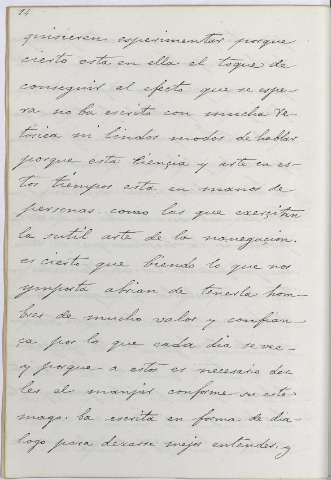 14
quisieren esperimentar porque
cierto esta en ella el toque de
conseguir el efecto que se espe-
ra no ba escrita con mucha Re
torica ni lindos modos de hablar
porque esta Cençia y arte en es-
tos tiempos esta en manos de
personas como las que exerzitan
la sutil arte de la navegacion.
es cierto que biendo lo que nos
ymporta abian de tenerla hom-
bres de mucho valor y confian-
sa por lo que cada dia se ve-
y porque a estos es necesario dar
les el manjar conforme su esto-
mago. ba escrita en forma de dia-
logo para dexarse mejor entender. y